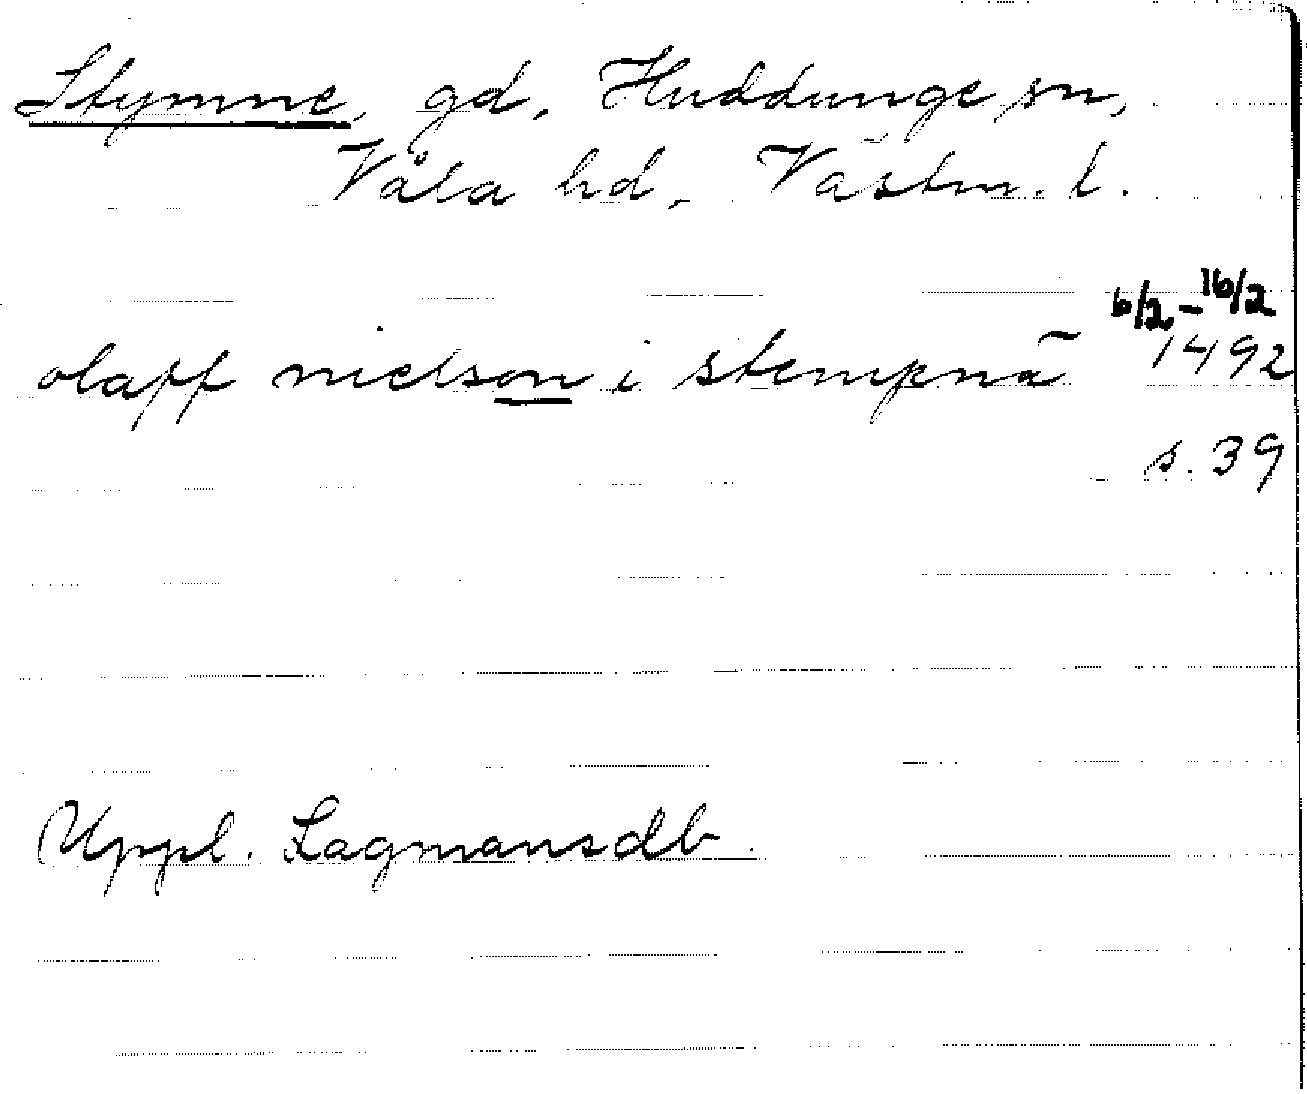 Stymne, gd, Huddunge sn,
Våla hd, Västm. l.
6/2-16/2
olaff nielson i stempnā 1492
s. 39
Uppl. Lagmansdb.